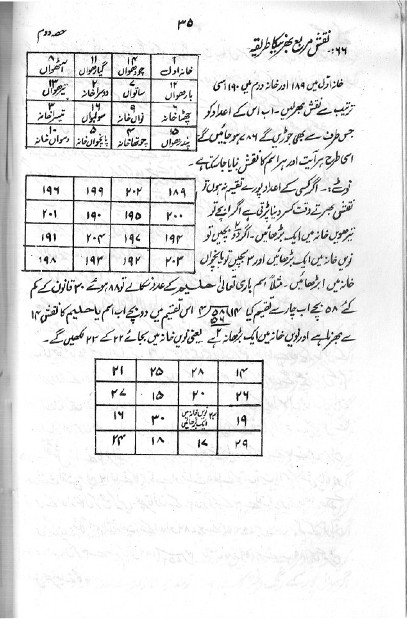 ۳۵
حصہ دوم
۶۶:۔ نقش مربع بھرنیکا طریقہ
۱ ۱۴ ۱۱ ۸
خانہ اول چودھواں گیارھواں آٹھواں
۱۲ ۷ ۲ ۱۳
بارھواں ساتواں دوسرا خانہ تیرھواں
۶ ۹ ۱۶ ۳
چھٹا خانہ نواں خانہ سولہواں تیسرا خانہ
۱۵ ۴ ۵ ۱۰
پندرھواں چوتھا خانہ پانچواں خانہ دسواں خانہ
خانہ اول میں ۱۸۹ اور خانہ دوم میں ۱۹۰ اسی
ترتیب سے نقش بھر لیں۔ اب اس کے اعداد کو
جس طرف سے بھی جوڑیں گے ۷۸۶ ہو جائیں گے
اسی طرح ہر آیت اور ہر اسم کا نقش بنایا جا سکتا ہے۔
نوٹ:۔ اگر کسی کے اعداد پورے تقسیم نہ ہوں تو
نقش بھرتے وقت کسر دینا پڑتی ہے اگر ۱ بچے تو
تیرھویں خانہ میں ایک بڑھائیں۔ اگر ۲ بچیں تو
نویں خانہ میں ایک بڑھائیں اور ۳ بچیں تو پانچواں
۱۸۹ ۲۰۲ ۱۹۹ ۱۹۶
۲۰۰ ۱۹۵ ۱۹۰ ۲۰۱
۱۹۴ ۱۹۷ ۲۰۴ ۱۹۱
۲۰۳ ۱۹۲ ۱۹۳ ۱۹۸
خانہ میں ۱ بڑھائیں۔ مثلاً اسم باری تعالیٰ حلیم کے عدد نکالے تو ۸۸ ہوئے ۳۰ قانون کے کم
کئے ۵۸ بچے اب چار سے تقسیم کیا ۴) ۵۸ (۱۴ ۵۶ ۲ اس تقسیم میں دو بچے اب اسم یا حلیم کا نقش ۱۴
سے بھرنا ہے اور نویں خانہ میں ایک بڑھانا ہے یعنی نویں خانہ میں بجائے ۲۲ کے ۲۳ لکھیں گے۔
۱۴ ۲۸ ۲۵ ۲۱
۲۶ ۲۰ ۱۵ ۲۷
۱۹ ۲۳ نویں خانہ میں ایک بڑھایا ۳۰ ۱۶
۲۹ ۱۷ ۱۸ ۲۴